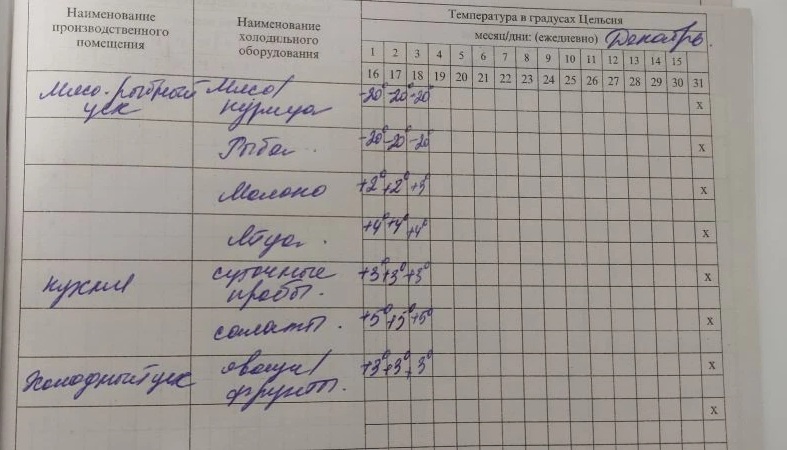 Наименование производственного помещения
Наименование холодильного оборудования
Температура в градусах Цельсия
месяц/дни: (ежедневно) Декабрь.
1 2 3 4 5 6 7 8 9 10 11 12 13 14 15
16 17 18 19 20 21 22 23 24 25 26 27 28 29 30 31
Мясо-рыбный цех Мясо/курица -20° -20° -20° х
Рыба. -20° -20° -20° х
Молоко +2° +2° +3° х
Яйца. +4° +4° +4° х
кухня суточные пробы. +3° +3° +3° х
салаты. +5° +5° +5° х
Холодный цех овощи/фрукты. +3° +3° +3° х
х